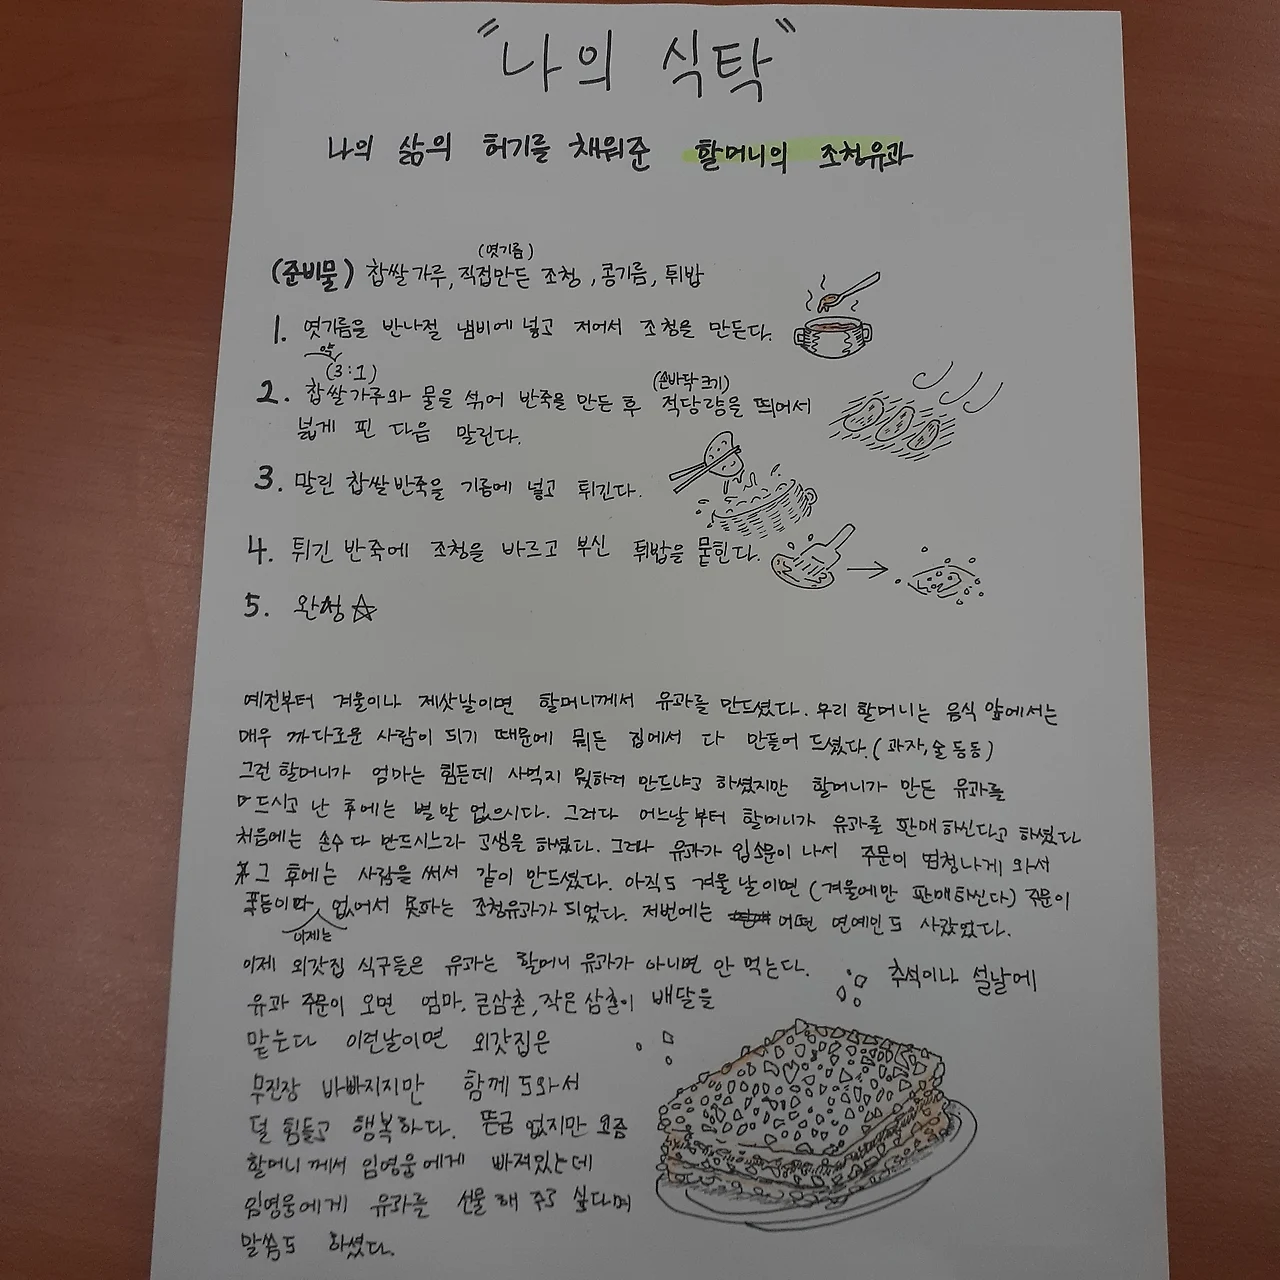 "나의 식탁"
나의 삶의 허기를 채워준 할머니의 조청유과
(엿기름)
(준비물) 찹쌀가루, 직접만든 조청, 콩기름, 튀밥
1. 엿기름을 반나절 냄비에 넣고 저어서 조청을 만든다.
약
(3:1)
(손바닥 크기)
2. 찹쌀가루와 물을 섞어 반죽을 만든 후 적당량을 띄어서
넓게 핀 다음 말린다.
3. 말린 찹쌀반죽을 기름에 넣고 튀긴다.
4. 튀긴 반죽에 조청을 바르고 부신 튀밥을 뭍힌다.
5. 완성☆
예전부터 겨울이나 제삿날이면 할머니께서 유과를 만드셨다. 우리 할머니는 음식 앞에서는
매우 까다로운 사람이 되기 때문에 뭐든 집에서 다 만들어 드셨다.(과자,술 등등)
그런 할머니가 엄마는 힘든데 사먹지 뭣하러 만드냐고 하셨지만 할머니가 만든 유과를
드시고 난 후에는 별 말 없으시다. 그러다 어느날부터 할머니가 유과를 판매하신다고 하셨다
처음에는 손수 다 만드시느라 고생을 하셨다. 그러나 유과가 입소문이 나서 주문이 엄청나게 와서
그 후에는 사람을 써서 같이 만드셨다. 아직도 겨울 날이면 (겨울에만 판매하신다) 주문이
폭등이다, 없어서 못하는 조청유과가 되었다. 저번에는 어떤 연예인도 사갔었다.
이제는
이제 외갓집 식구들은 유과는 할머니 유과가 아니면 안 먹는다. 추석이나 설날에
유과 주문이 오면 엄마, 큰삼촌, 작은 삼촌이 배달을
맡는다 이런날이면 외갓집은
무진장 바빠지지만 함께 도와서
덜 힘들고 행복하다. 뜬금 없지만 요즘
할머니께서 임영웅에게 빠져있는데
임영웅에게 유과를 선물해 주고 싶다며
말씀도 하셨다.